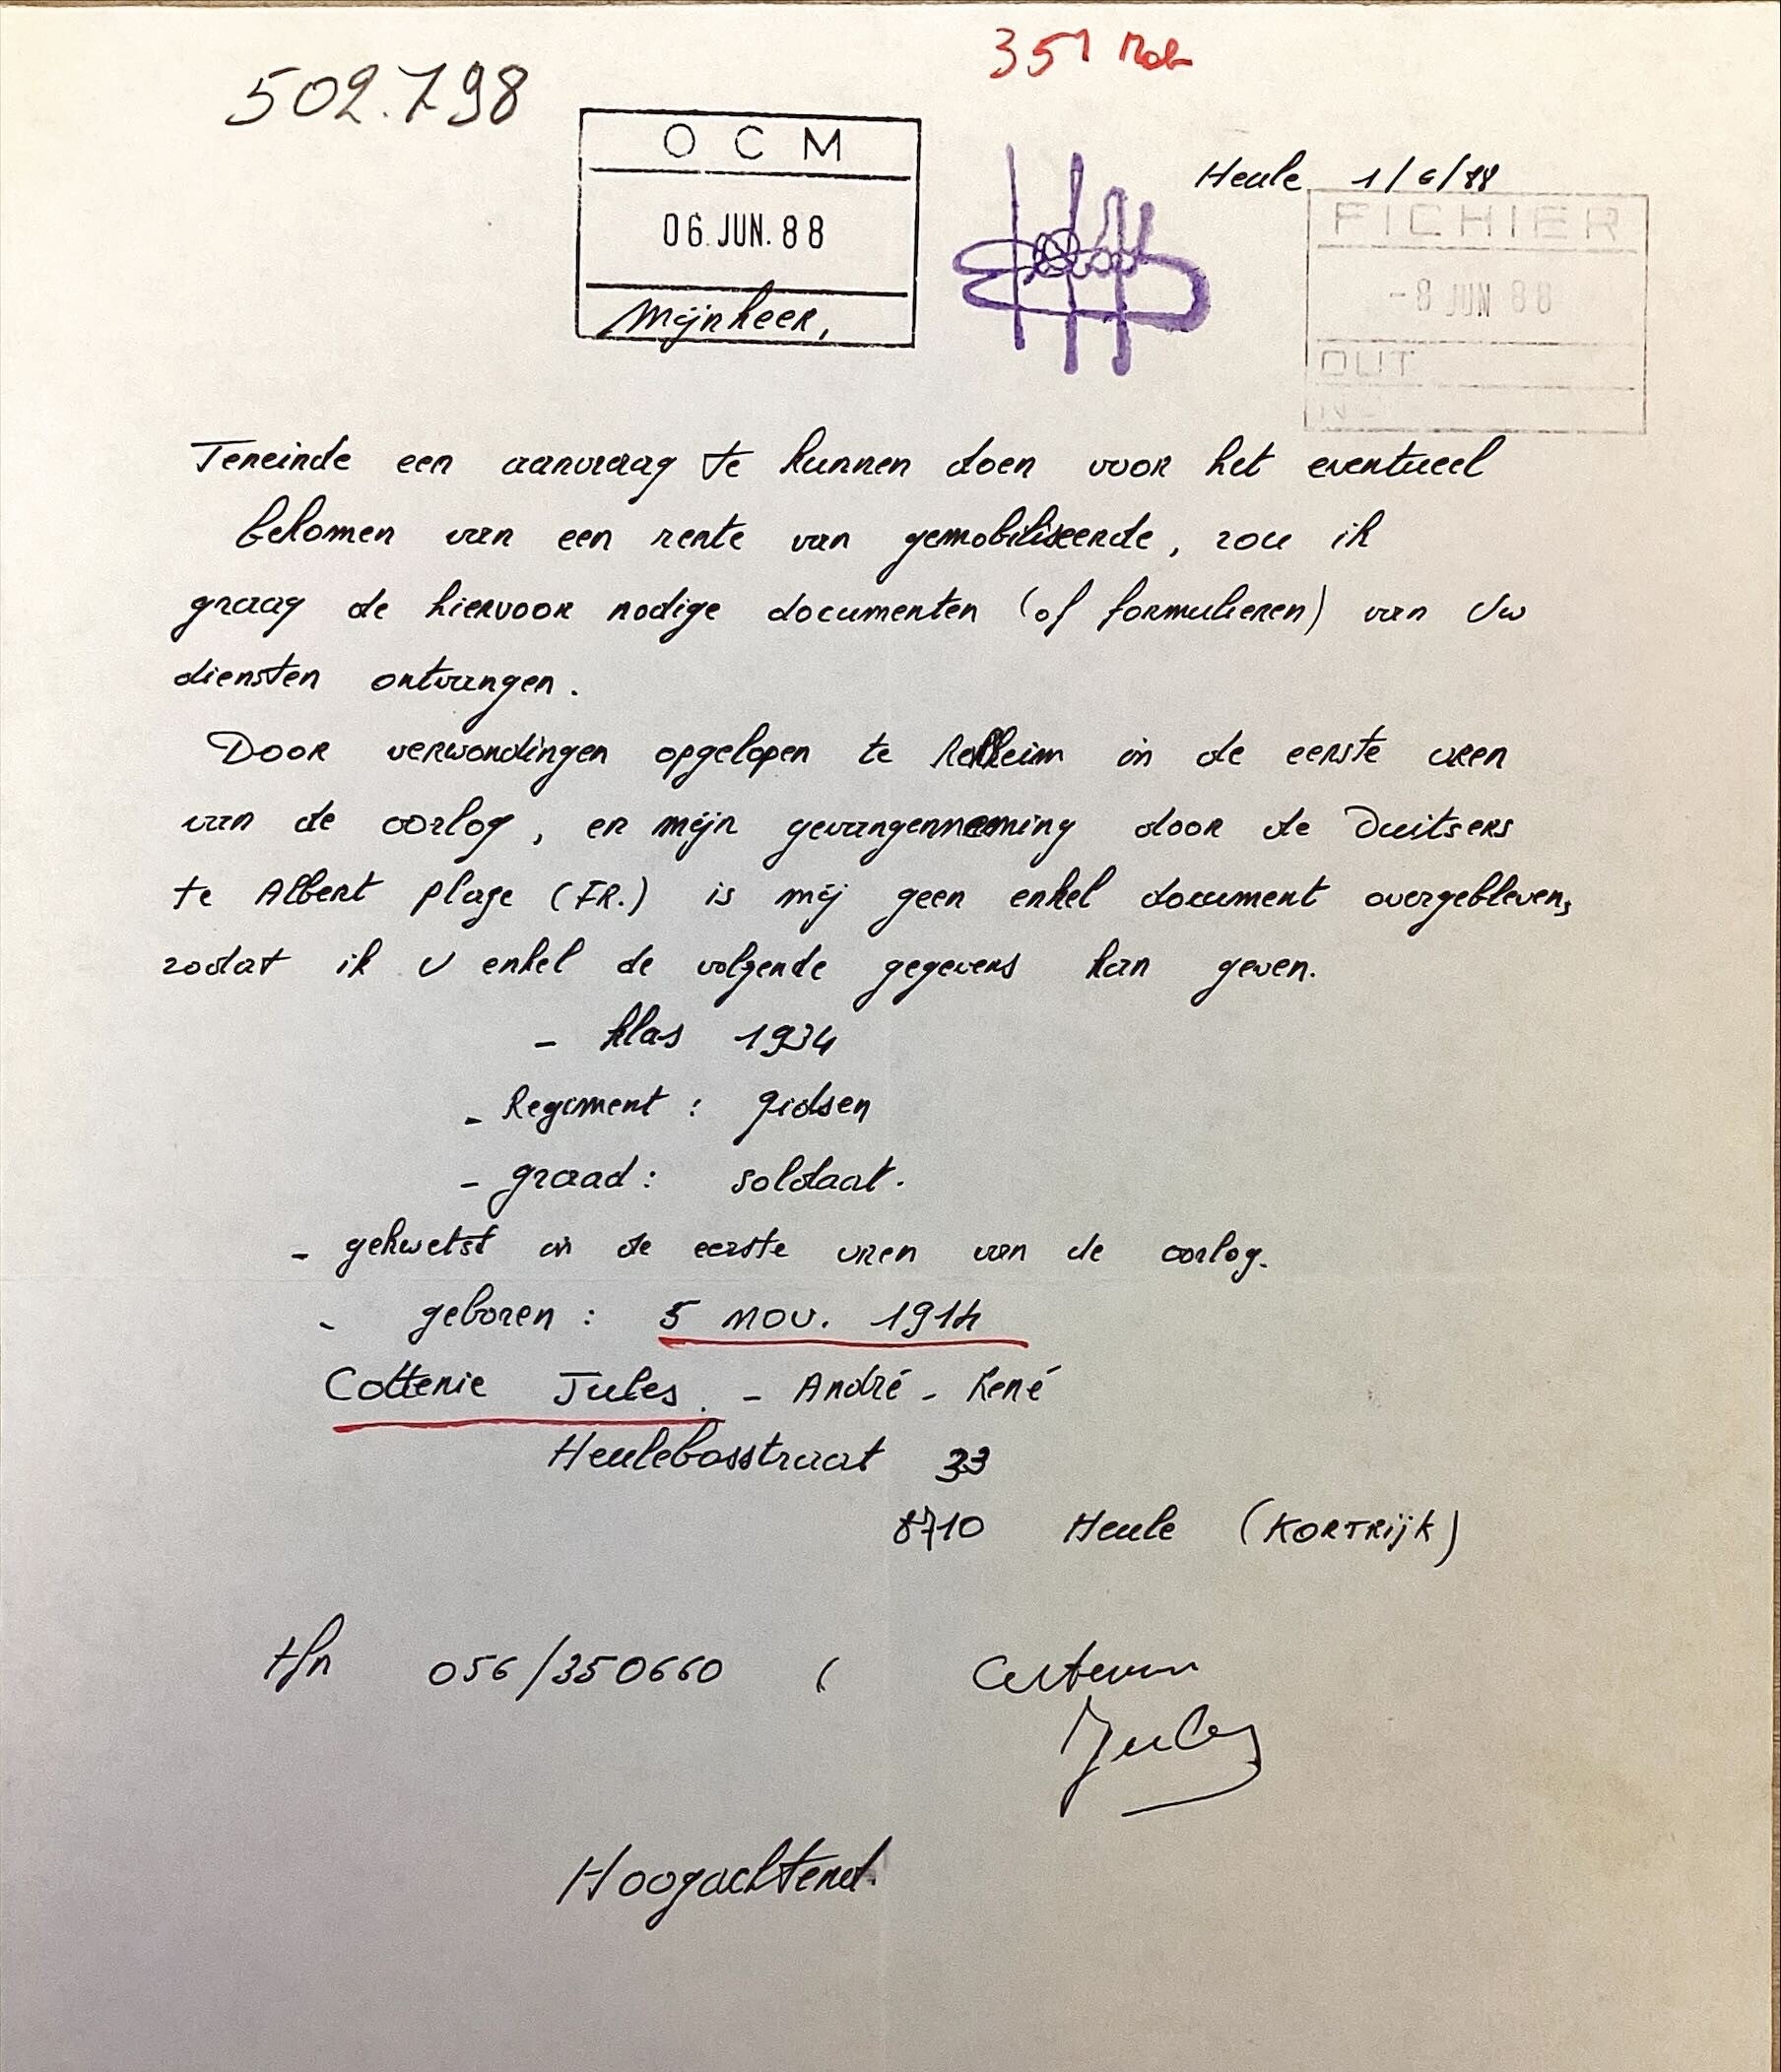 351 Mob
502.798
O C M
06 JUN. 88
Heule 1/6/88
FICHIER
-8 JUN 88
OUT
Mijnheer,
Teneinde een aanvraag te kunnen doen voor het eventueel
bekomen van een rente van gemobiliseerde, zou ik
graag de hiervoor nodige documenten (of formulieren) van Uw
diensten ontvangen.
Door verwondingen opgelopen te in de eerste uren
van de oorlog, en mijn gevangenneming door de Duitsers
te Albert plage (FR.) is mij geen enkel document overgebleven,
zodat ik U enkel de volgende gegevens kan geven.
- klas 1934
- Regiment : gidsen
- graad : soldaat.
- gekwetst in de eerste uren van de oorlog.
- geboren : 5 nov. 1914
Cottenie Jules. - André - René
Heulebosstraat 33
8710 Heule (KORTRIJK)
tfn 056/350660 (
Jules
Hoogachtend.